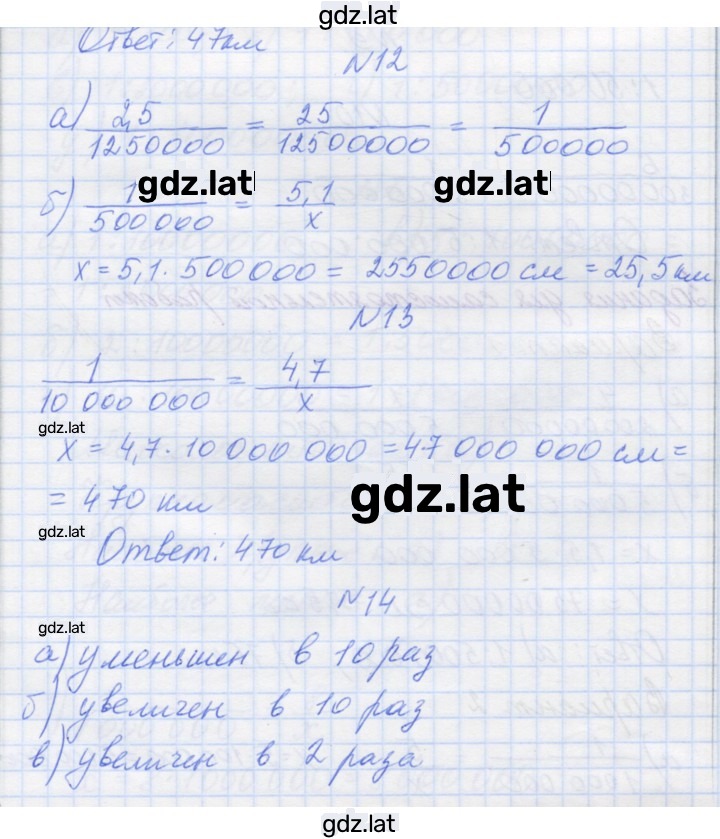 gdz.lat
Ответ: 47км
N12
а) 2,5/1250000 = 25/12500000 = 1/500000
gdz.lat gdz.lat
б) 1/500 000 = 5,1/x
x = 5,1 · 500 000 = 2550000 см = 25,5 км
N13
1/10 000 000 = 4,7/x
gdz.lat
x = 4,7 · 10 000 000 = 47 000 000 см =
= 470 км
gdz.lat
gdz.lat
Ответ: 470 км
N14
gdz.lat
а) уменьшен в 10 раз
б) увеличен в 10 раз
в) увеличен в 2 раза
gdz.lat